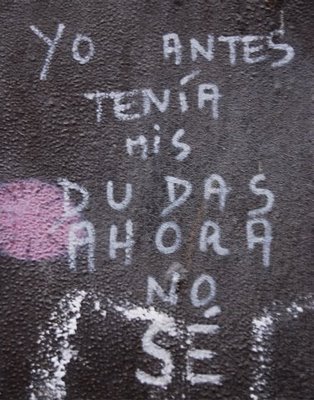 YO ANTES
TENÍA
MiS
DUDAS
AHORA
NO
SÉ